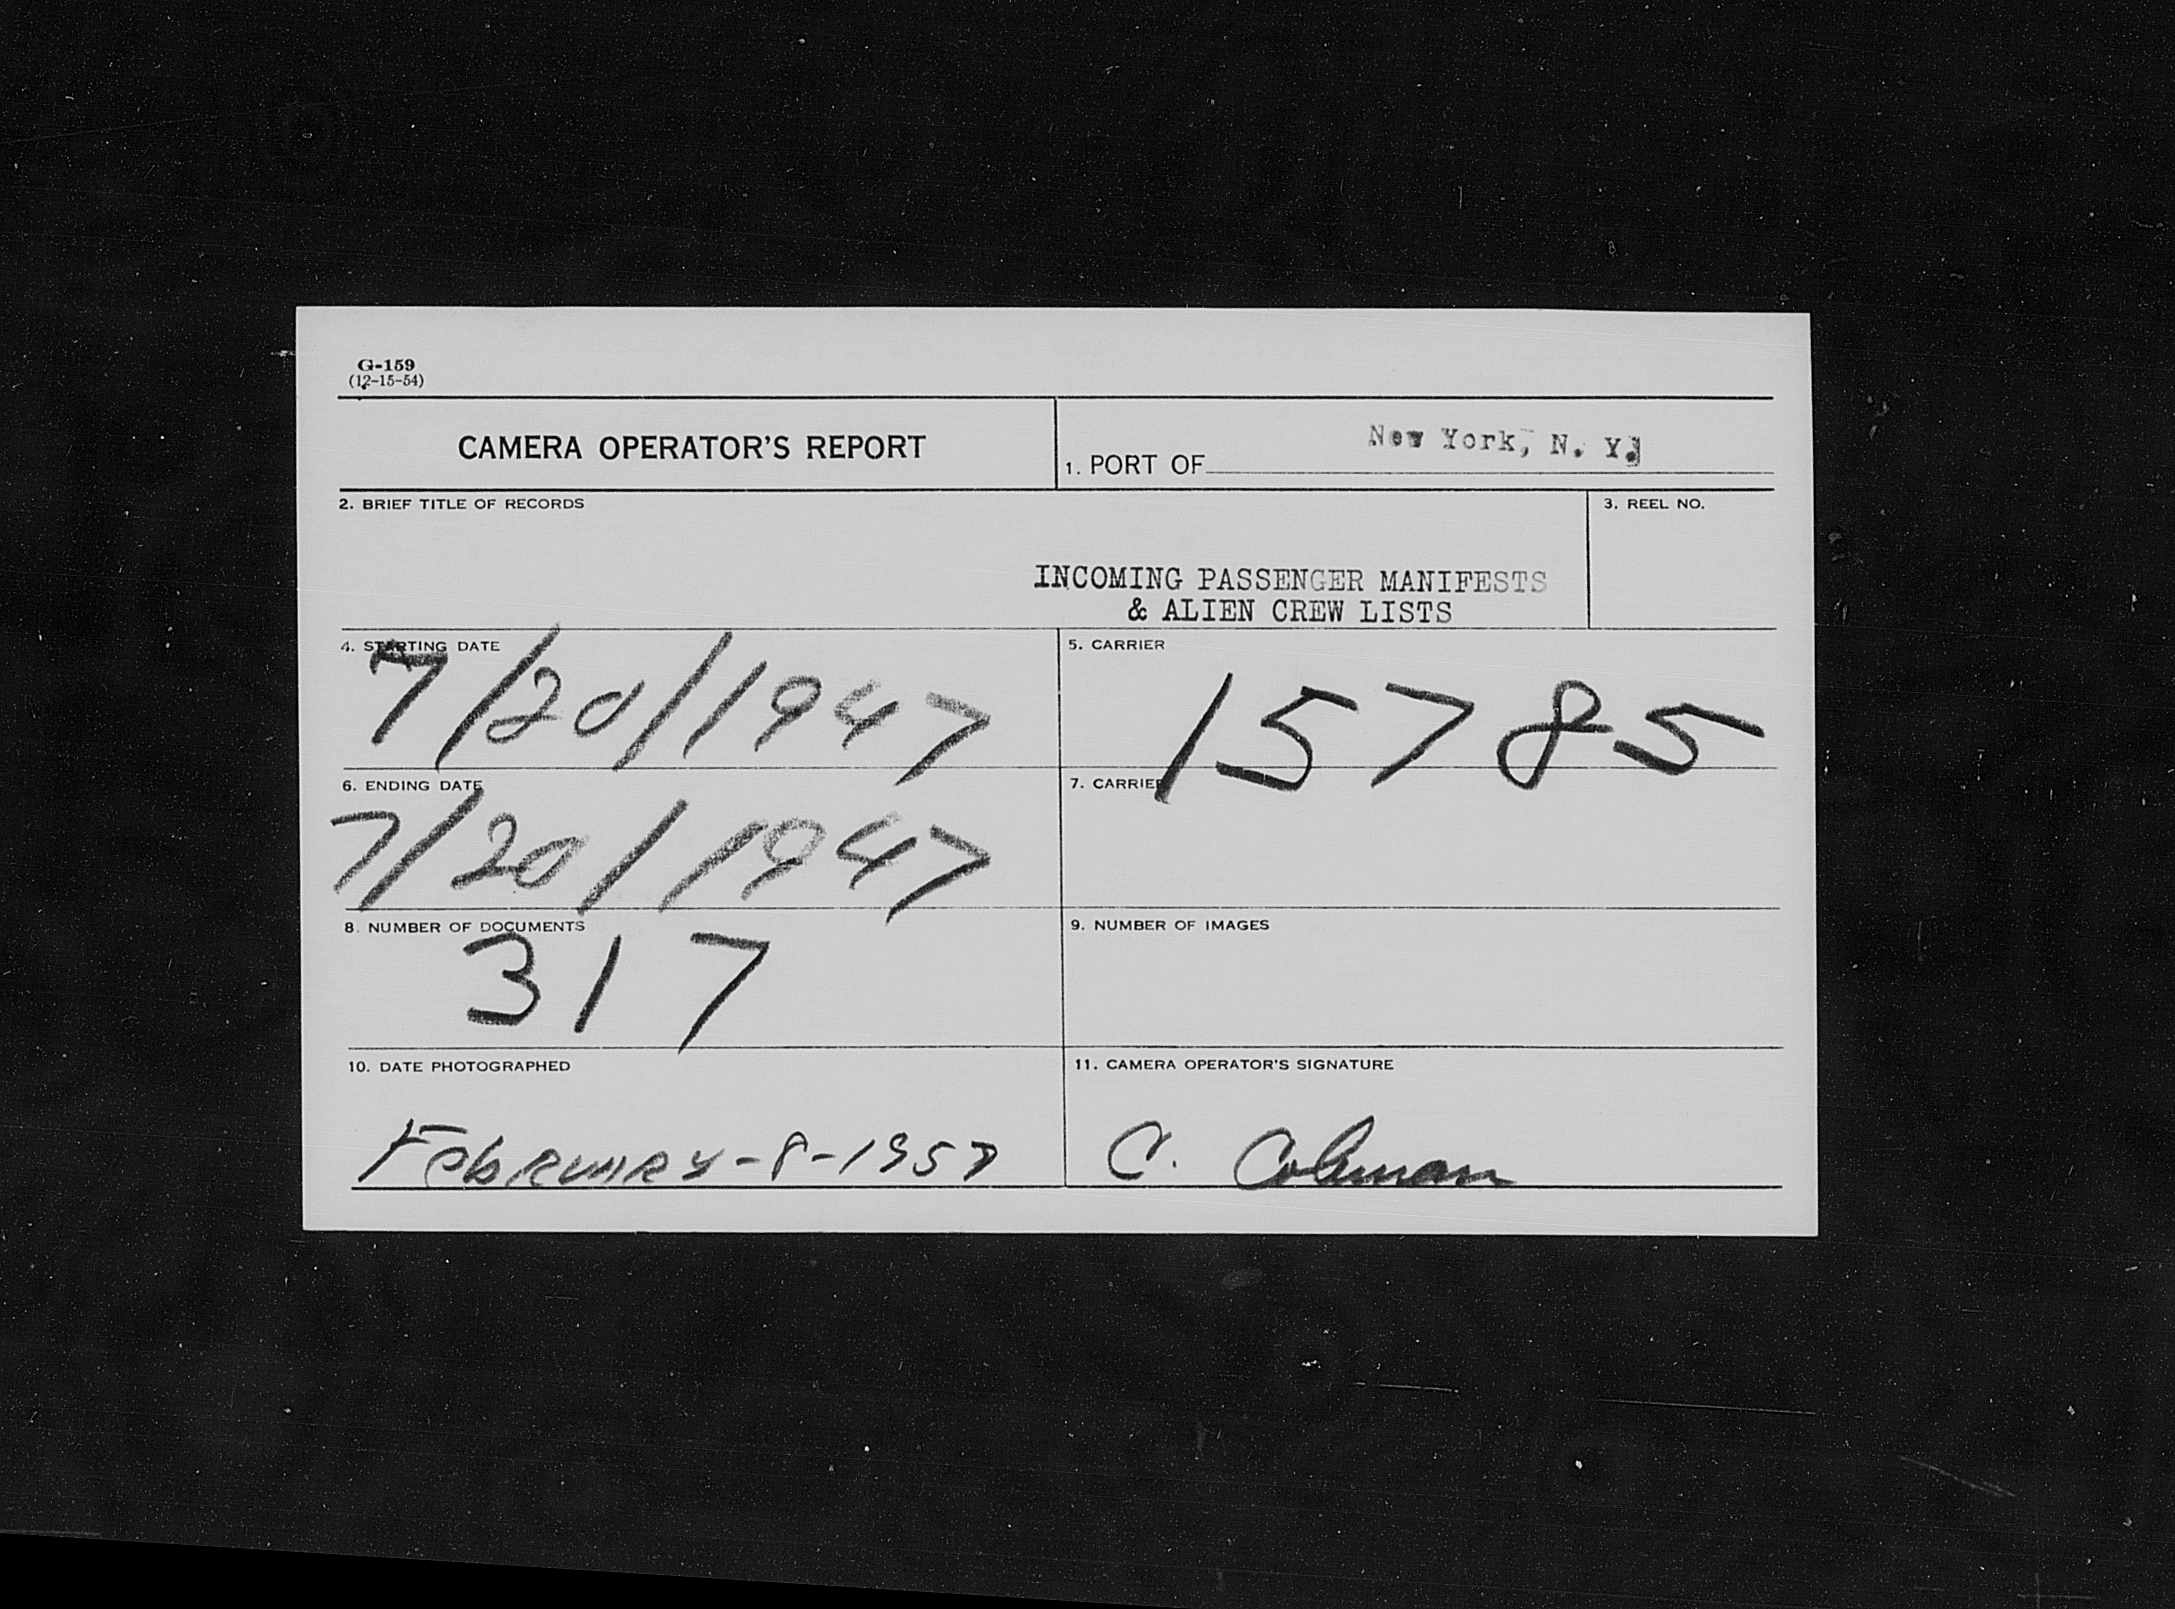 G-159
(12-15-54)
CAMERA OPERATOR'S REPORT
1. PORT OF New York, N. Y.
2. BRIEF TITLE OF RECORDS
INCOMING PASSENGER MANIFESTS
& ALIEN CREW LISTS
3. REEL NO.
4. STARTING DATE
7/20/1947
5. CARRIER
15785
6. ENDING DATE
7/20/1947
7. CARRIER
8. NUMBER OF DOCUMENTS
317
9. NUMBER OF IMAGES
10. DATE PHOTOGRAPHED
February-8-1957
11. CAMERA OPERATOR'S SIGNATURE
C. Coleman